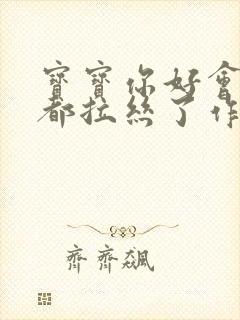 寶寶你好會
都拉絲了作
齊齊飆